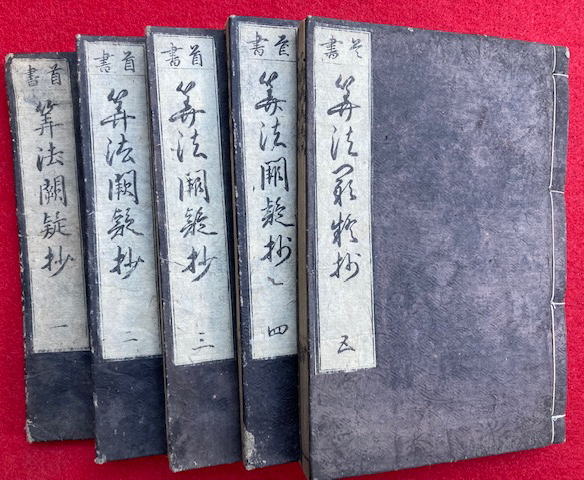 首書
筭法闕疑抄
一
首書
筭法闕疑抄
二
首書
筭法闕疑抄
三
首書
筭法闕疑抄
四
首書
筭法闕疑抄
五